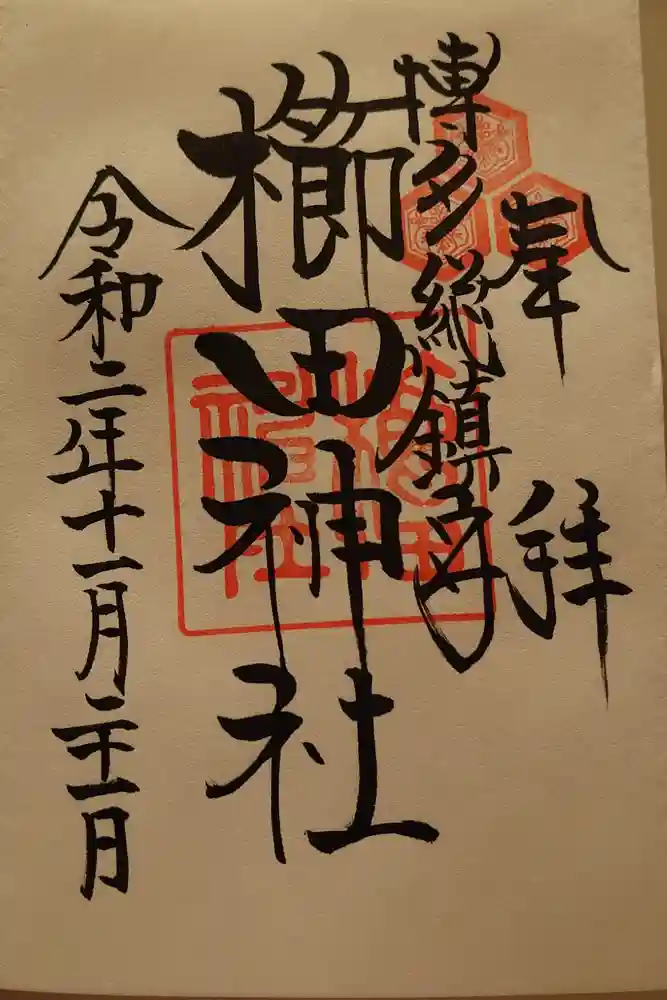 奉拝
博多総鎮守
櫛田神社
令和二年十一月二十一日